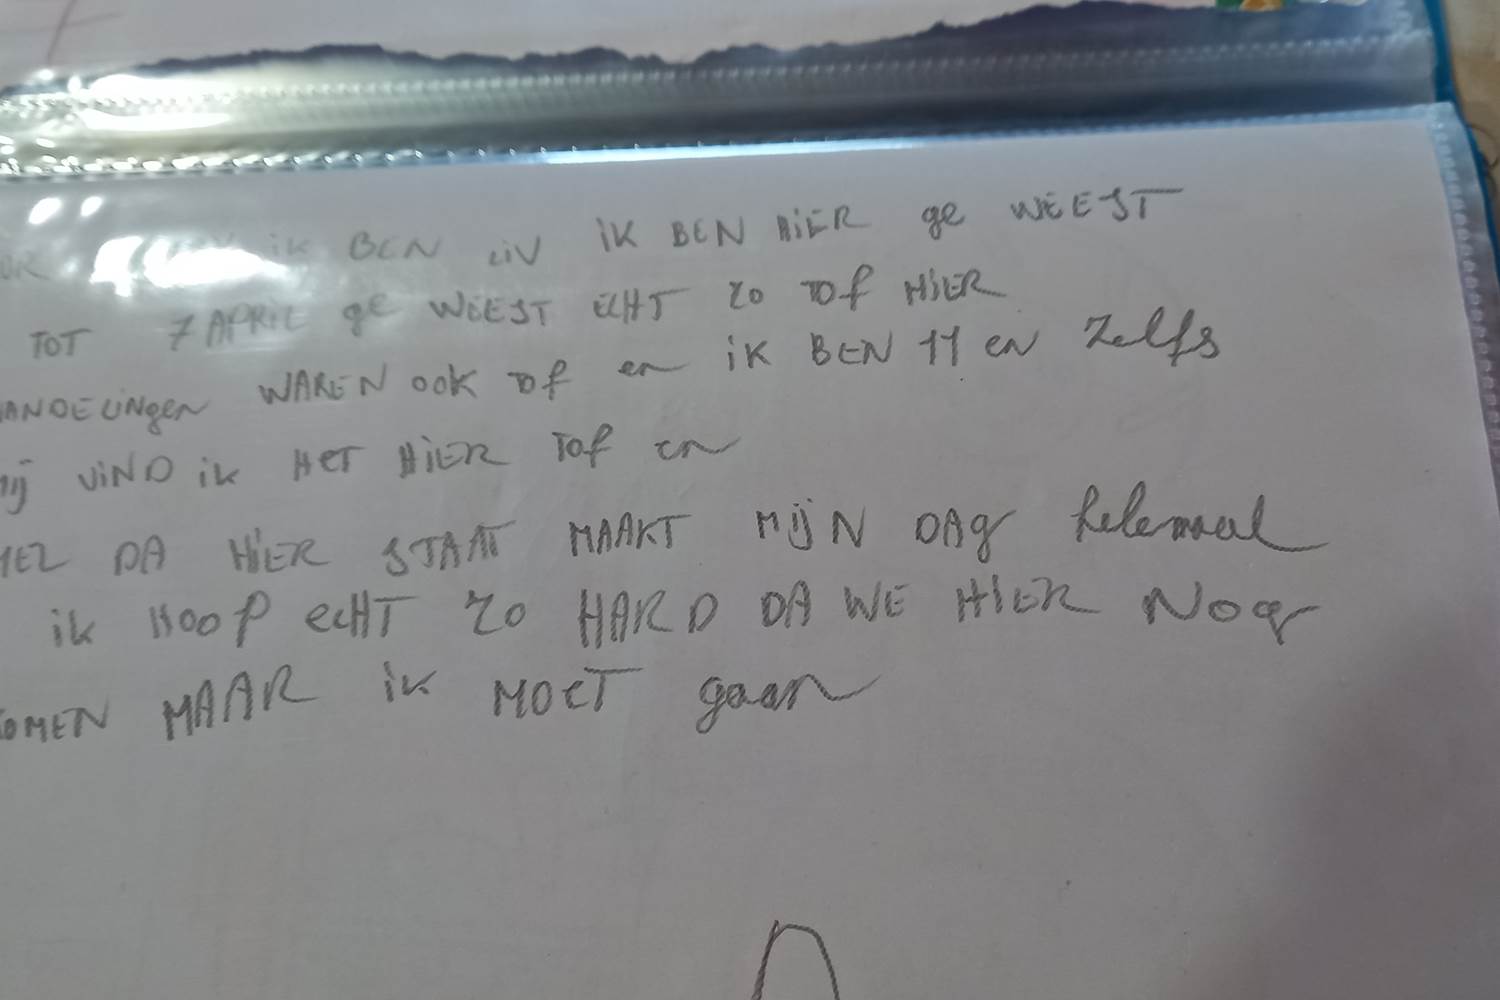 ik BEN LIV iK BEN HiER ge WEEST
TOT 7 APRIL ge WEEST ECHT ZO TOf HiER
WAREN OOK TOf en iK BEN 11 en Zelfs
mij ViND ik HET HiER Tof en
DA HiER STAAT MAAKT MijN DAg helemaal
ik HOOP ecHT ZO HARD DA WE HiER Nog
KOMEN MAAR ik MOET gaan